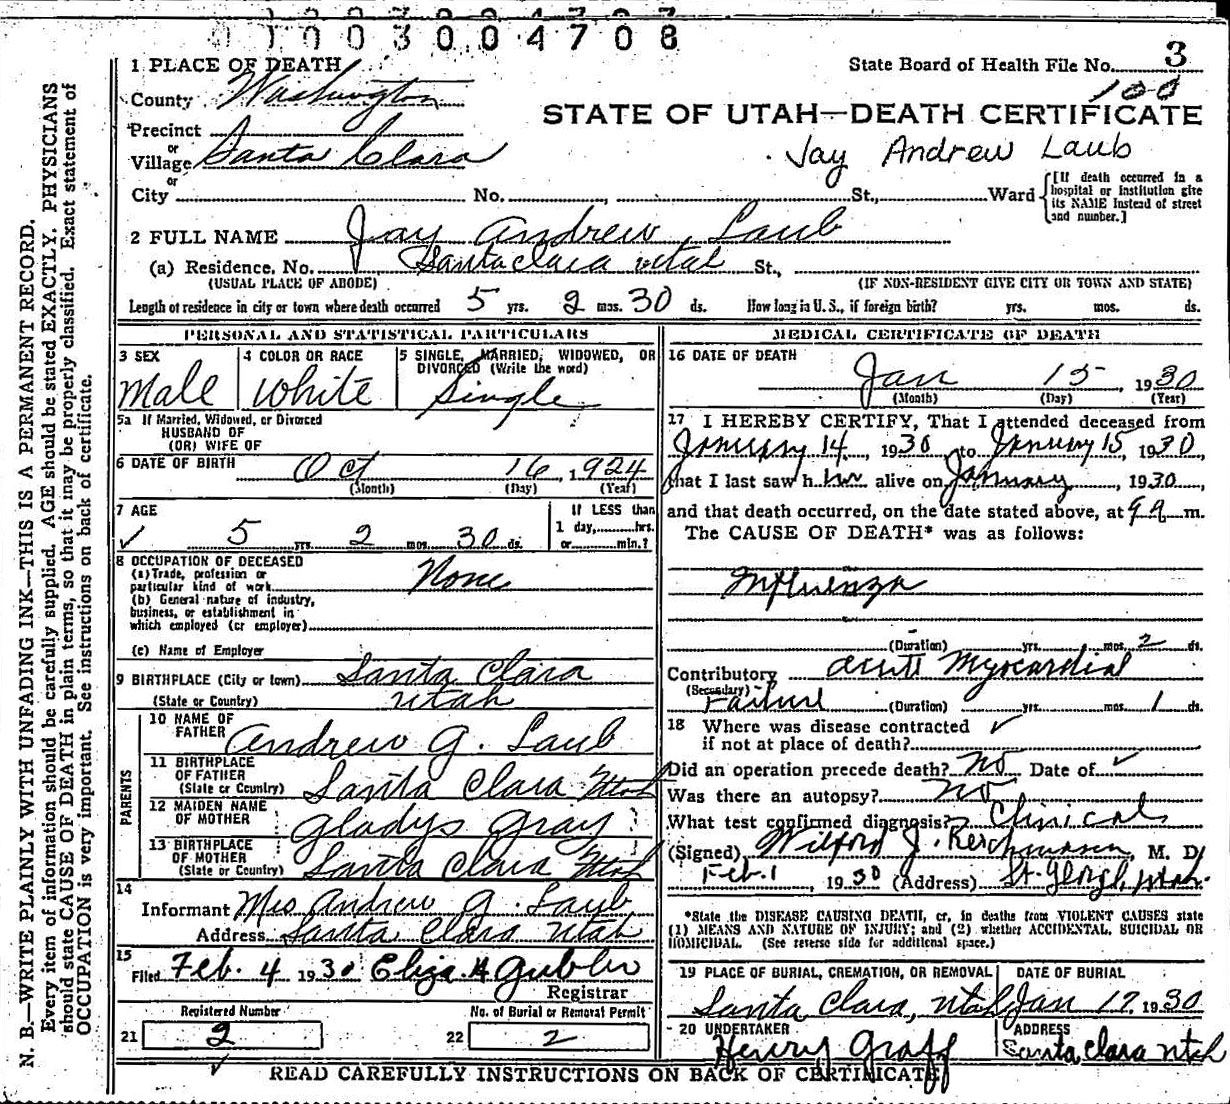 1003004708
1 PLACE OF DEATH
State Board of Health File No. 3
County Washington
100
STATE OF UTAH—DEATH CERTIFICATE
Precinct
or
Village Santa Clara
Jay Andrew Laub
or
City No. , St., Ward
[If death occurred in a hospital or institution give its NAME instead of street and number.]
2 FULL NAME Jay Andrew Laub
(a) Residence, No. Santa Clara Utah St.,
(USUAL PLACE OF ABODE) (IF NON-RESIDENT GIVE CITY OR TOWN AND STATE)
Length of residence in city or town where death occurred 5 yrs. 2 mos. 30 ds. How long in U. S., if foreign birth? yrs. mos. ds.
PERSONAL AND STATISTICAL PARTICULARS
3 SEX
Male
4 COLOR OR RACE
White
5 SINGLE, MARRIED, WIDOWED, OR
DIVORCED (Write the word)
Single
5a If Married, Widowed, or Divorced
HUSBAND OF
(OR) WIFE OF
6 DATE OF BIRTH Oct 16, 1924
(Month) (Day) (Year)
7 AGE
5 yrs. 2 mos. 30 ds.
If LESS than
1 day, hrs.
or min.?
8 OCCUPATION OF DECEASED
(a) Trade, profession or
particular kind of work None
(b) General nature of industry,
business, or establishment in
which employed (or employer)
(c) Name of Employer
9 BIRTHPLACE (City or town) Santa Clara
(State or Country) Utah
PARENTS
10 NAME OF
FATHER Andrew G. Laub
11 BIRTHPLACE
OF FATHER
(State or Country) Santa Clara Utah
12 MAIDEN NAME
OF MOTHER Gladys Gray
13 BIRTHPLACE
OF MOTHER
(State or Country) Santa Clara Utah
14
Informant Mrs Andrew G. Laub
Address Santa Clara Utah
15
Filed Feb. 4 1930 Eliza H Gubler
Registrar
Registered Number
21 2
No. of Burial or Removal Permit
22 2
MEDICAL CERTIFICATE OF DEATH
16 DATE OF DEATH
Jan 15, 1930
(Month) (Day) (Year)
17 I HEREBY CERTIFY, That I attended deceased from
January 14, 1930 to January 15, 1930,
that I last saw him alive on January, 1930,
and that death occurred, on the date stated above, at 9 a m.
The CAUSE OF DEATH* was as follows:
Influenza
(Duration) yrs. mos. 2 ds.
Contributory acute Myocardial
(Secondary) Failure (Duration) yrs. mos. 1 ds.
18 Where was disease contracted
if not at place of death?
Did an operation precede death? No Date of
Was there an autopsy? No
What test confirmed diagnosis? Clinical
(Signed) Wilford J. Reichmann, M. D.
Feb. 1, 1930 (Address) St. George, Utah.
*State the DISEASE CAUSING DEATH, or, in deaths from VIOLENT CAUSES state
(1) MEANS AND NATURE OF INJURY; and (2) whether ACCIDENTAL, SUICIDAL OR
HOMICIDAL. (See reverse side for additional space.)
19 PLACE OF BURIAL, CREMATION, OR REMOVAL
Santa Clara, Utah
DATE OF BURIAL
Jan 17, 1930
20 UNDERTAKER
Henry Graff
ADDRESS
Santa Clara Utah
READ CAREFULLY INSTRUCTIONS ON BACK OF CERTIFICATE
N. B.—WRITE PLAINLY WITH UNFADING INK—THIS IS A PERMANENT RECORD.
Every item of information should be carefully supplied. AGE should be stated EXACTLY. PHYSICIANS
should state CAUSE OF DEATH in plain terms, so that it may be properly classified. Exact statement of
OCCUPATION is very important. See instructions on back of certificate.